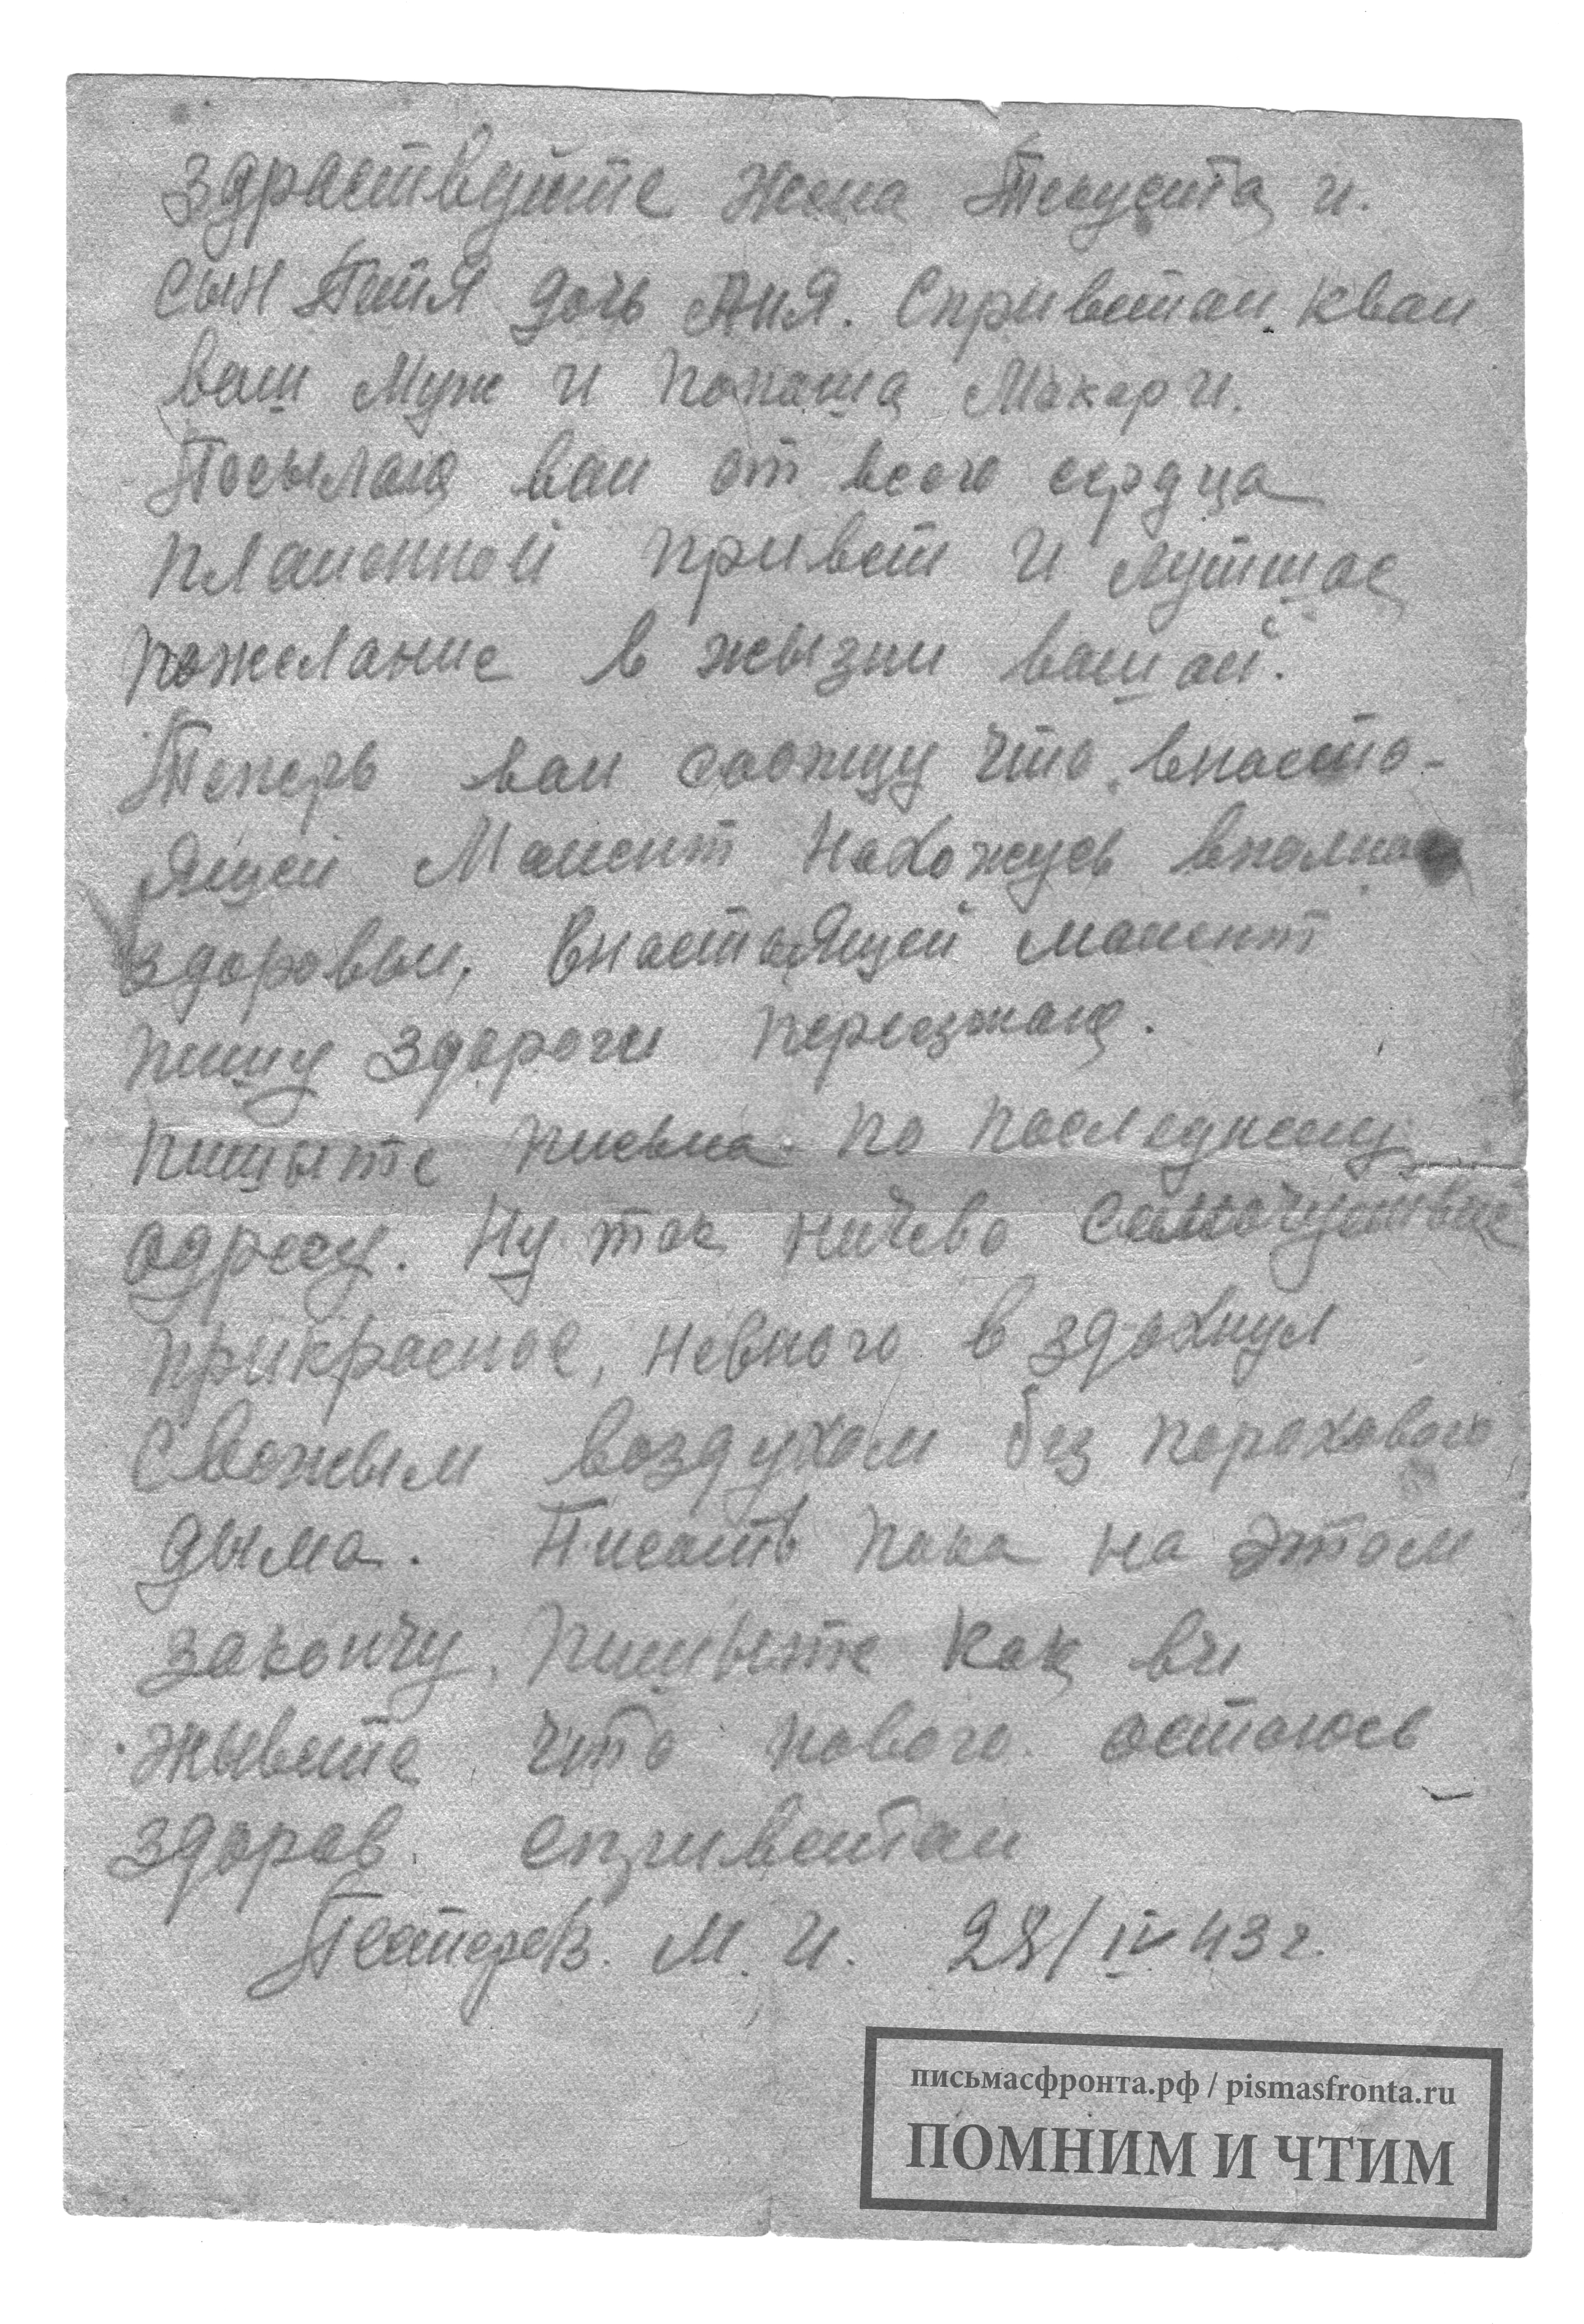 Здраствуйте жена и.
сын Петя дочь Аня. Сприветам квам
ваш муж и папаша Макар И.
Посылаю вам от всего сердца
пламенной привет и лутшае
пожелание в жызни вашай.
Теперь вам саожщу что внасто-
ящей Мамент Нахожусь вполне
здоровым, Внастаящей мамент
пишу здороги переезжаю.
пишыте писма по последнему
адресу. Ну так ничево самочуствие
прикрасное, невного вздохнул
Свежым воздухом без порохового
дыма. Писать пока на этом
закончу, пишыте как ви
жывете что нового. остаюсь
здоров сприветам
М. И. 28/IV 43 г.
письмасфронта.рф / pismasfronta.ru
ПОМНИМ И ЧТИМ